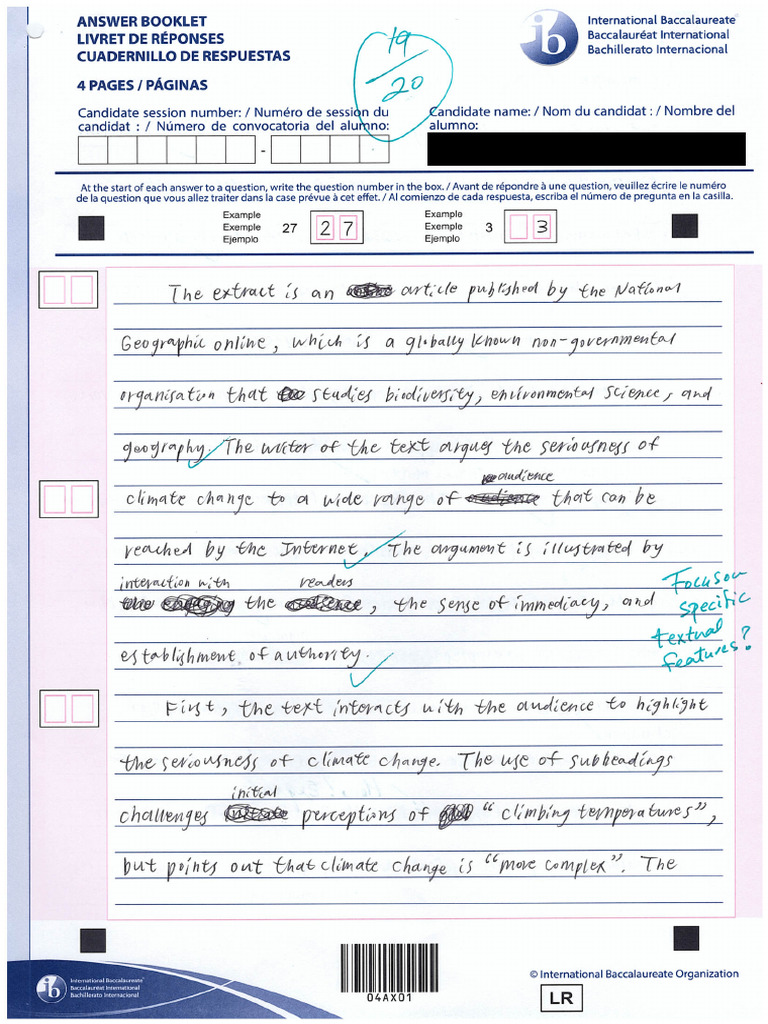 ANSWER BOOKLET
LIVRET DE RÉPONSES
CUADERNILLO DE RESPUESTAS
4 PAGES / PÁGINAS
19
20
ib
International Baccalaureate
Baccalauréat International
Bachillerato Internacional
Candidate session number: / Numéro de session du
candidat : / Número de convocatoria del alumno:
-
Candidate name: / Nom du candidat : / Nombre del
alumno:
At the start of each answer to a question, write the question number in the box. / Avant de répondre à une question, veuillez écrire le numéro
de la question que vous allez traiter dans la case prévue à cet effet. / Al comienzo de cada respuesta, escriba el número de pregunta en la casilla.
Example
Exemple
Ejemplo
27
2 7
Example
Exemple
Ejemplo
3
3
The extract is an article published by the National
Geographic online, which is a globally known non-governmental
organisation that studies biodiversity, environmental science, and
geography. The writer of the text argues the seriousness of
audience
climate change to a wide range of that can be
reached by the Internet. The argument is illustrated by
interaction with readers
the , the sense of immediacy, and
establishment of authority.
Focus on
specific
textual
features?
First, the text interacts with the audience to highlight
the seriousness of climate change. The use of subheadings
initial
challenges perceptions of "climbing temperatures",
but points out that climate change is "more complex". The
International Baccalaureate
Baccalauréat International
Bachillerato Internacional
04AX01
© International Baccalaureate Organization
LR